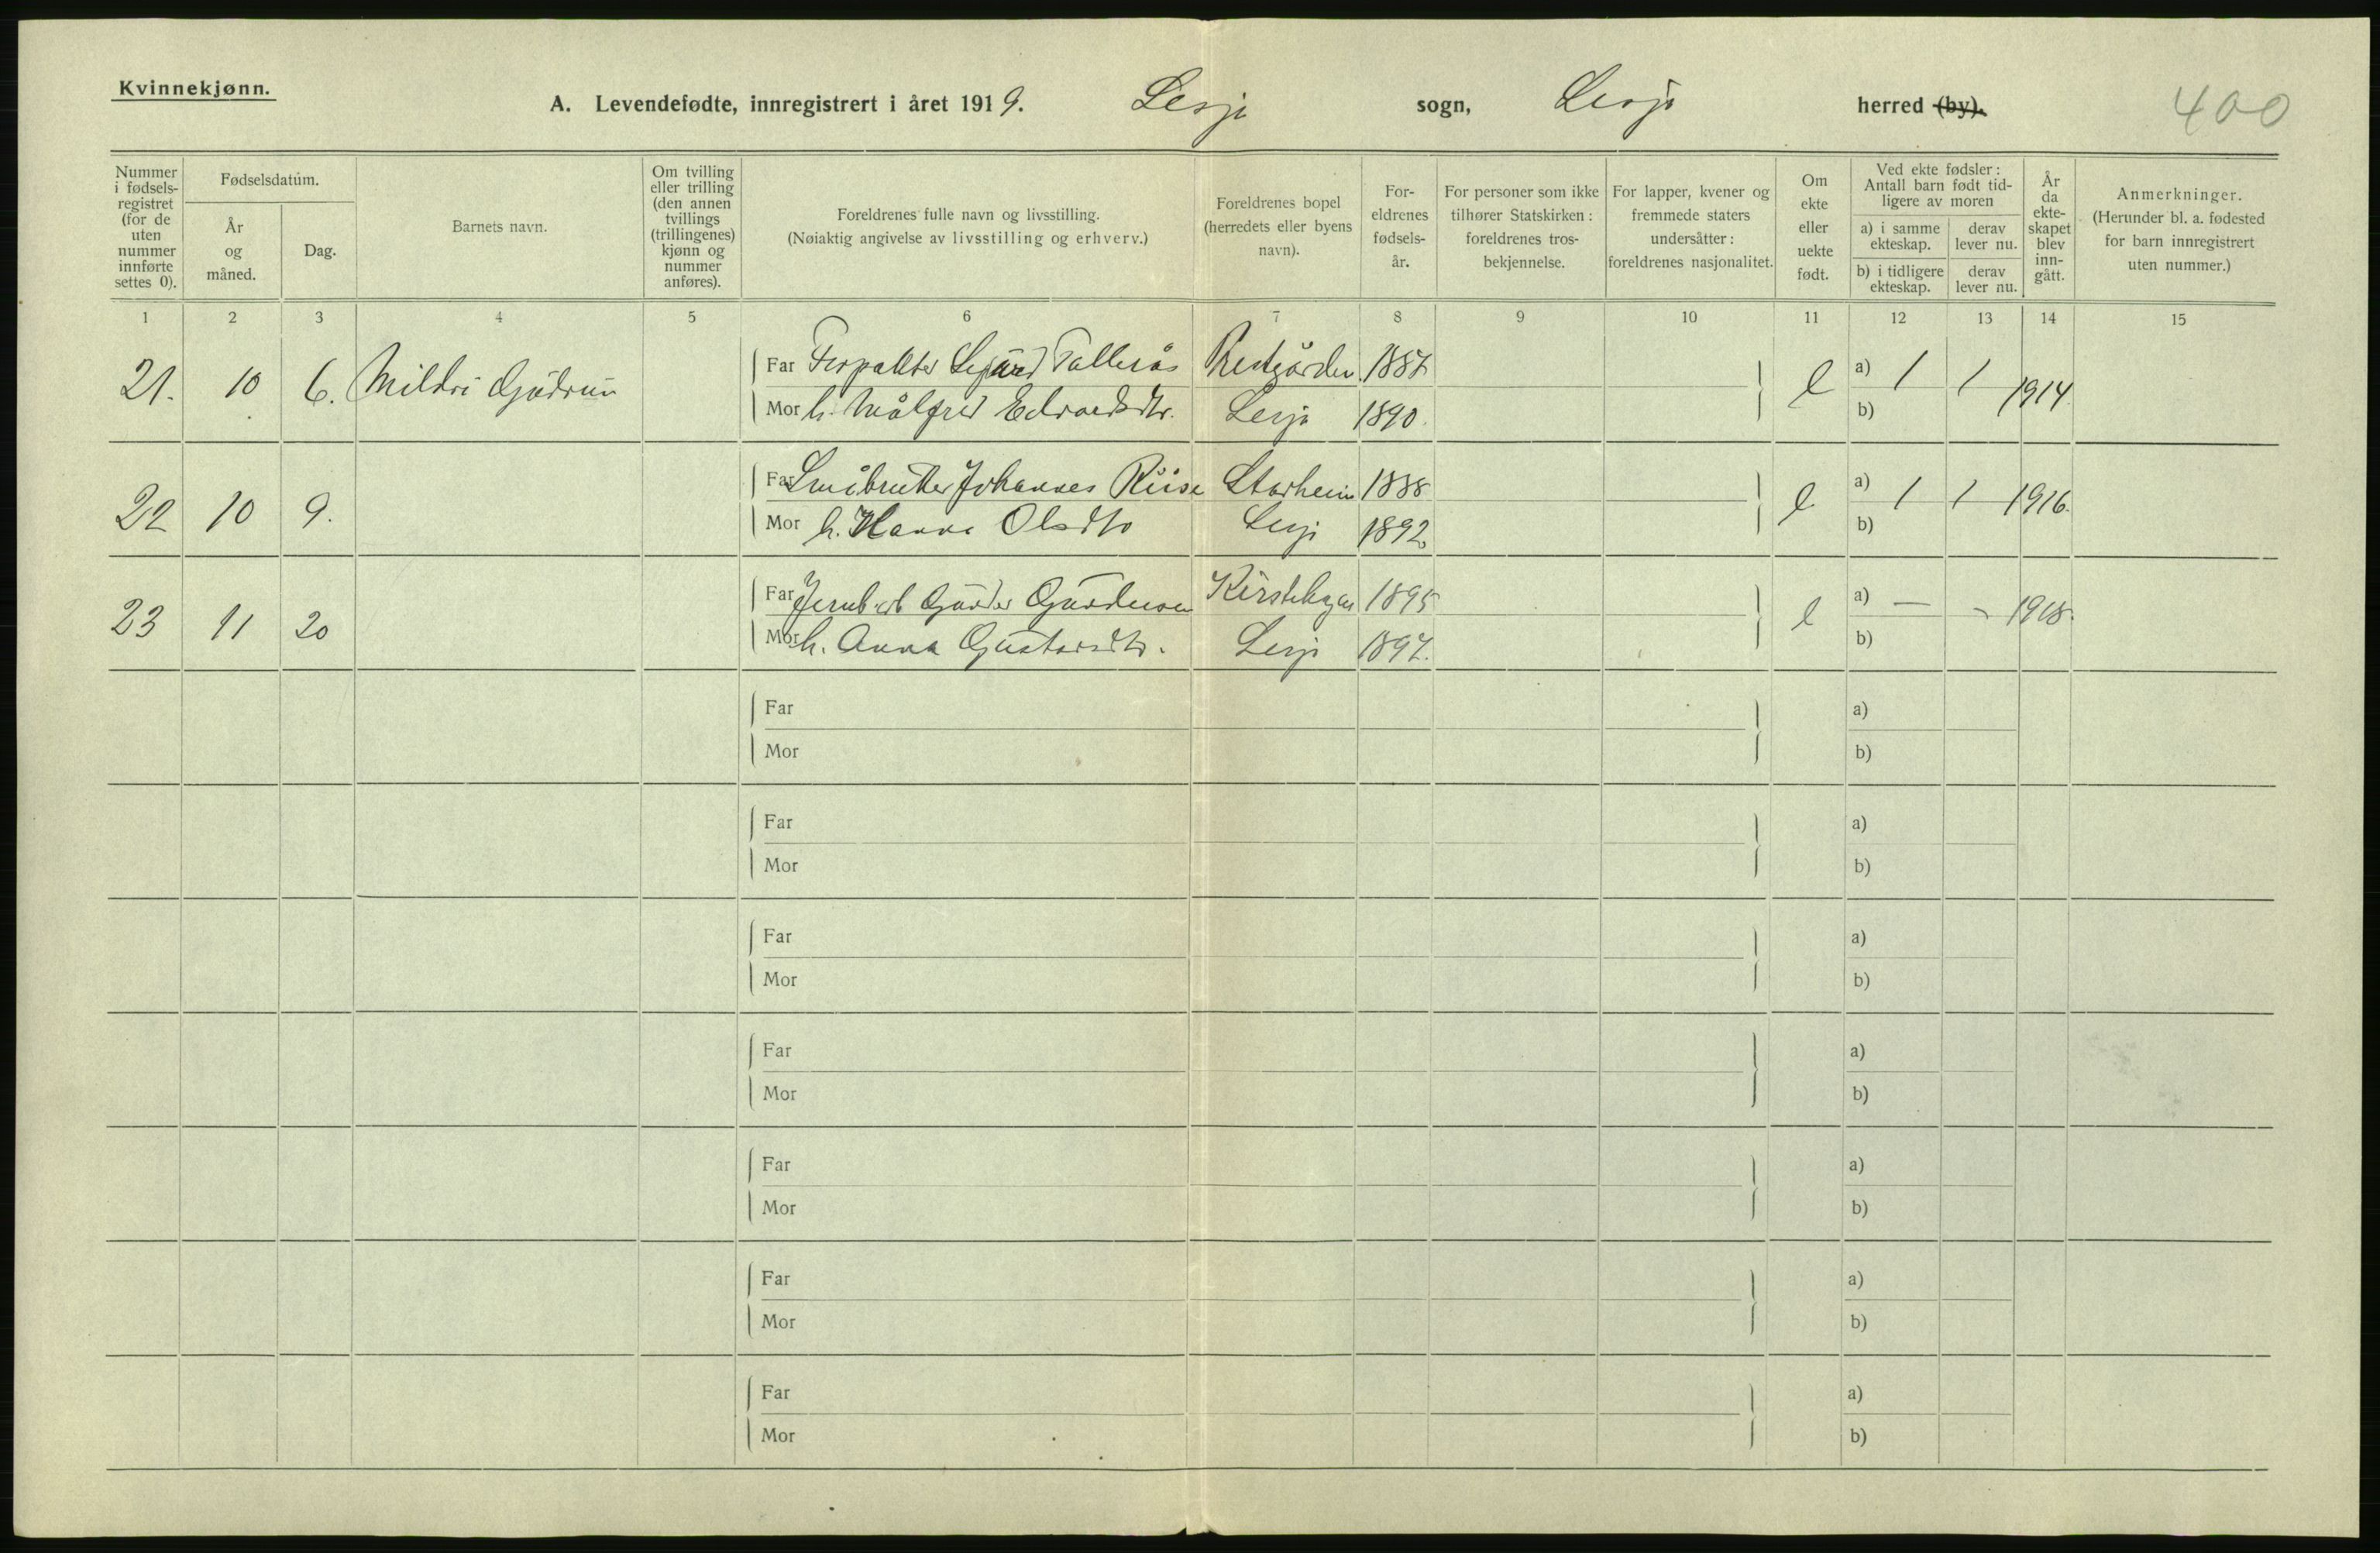 Kvinnekjønn.
A. Levendefødte, innregistrert i året 1919. Lesja sogn, Lesja herred (by). 400
Nummer i fødsels- registret (for de uten nummer innførte settes 0).
Fødselsdatum.
År og måned.
Dag.
Barnets navn.
Om tvilling eller trilling (den annen tvillings (trillingenes) kjønn og nummer anføres).
Foreldrenes fulle navn og livsstilling.
(Nøiaktig angivelse av livsstilling og erhverv.)
Foreldrenes bopel (herredets eller byens navn).
For- eldrenes fødsels- år.
For personer som ikke tilhører Statskirken: foreldrenes tros- bekjennelse.
For lapper, kvener og fremmede staters undersåtter: foreldrenes nasjonalitet.
Om ekte eller uekte født.
Ved ekte fødsler: Antall barn født tid- ligere av moren
a) i samme ekteskap.
derav lever nu.
b) i tidligere ekteskap.
derav lever nu.
År da ekte- skapet blev inn- gått.
Anmerkninger.
(Herunder bl. a. fødested for barn innregistrert uten nummer.)
1 2 3 4 5 6 7 8 9 10 11 12 13 14 15
21. 10 6. Mildri Gudrun
Far Forpakter Sigurd Tallerås Prestgården 1887
Mor h. Målfred Edvardsdtr. Lesja 1890.
e a) 1 1 1914
b)
22 10 9.
Far Småbruker Johannes Riise Storheim 1888
Mor h. Hanna Olsdtr Lesja 1892
e a) 1 1 1916.
b)
23 11 20
Far Jernb.arb 1895
Mor h. Anna Gustavsdtr. Lesja 1897.
e a) — - 1918.
b)
Far a)
Mor b)
Far a)
Mor b)
Far a)
Mor b)
Far a)
Mor b)
Far a)
Mor b)
Far a)
Mor b)
Far a)
Mor b)